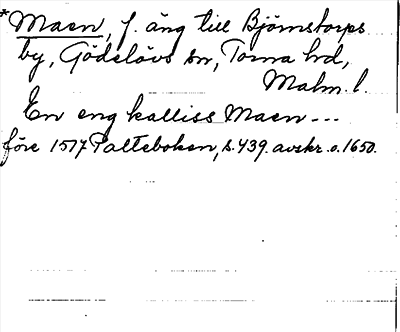 *Maen, f. äng till Björnstorps
by, Gödelövs sn, Torna hd,
Malm. l.
En eng kalliss Maen ---
före 1517 Palteboken, s. 439. avskr. o. 1650.